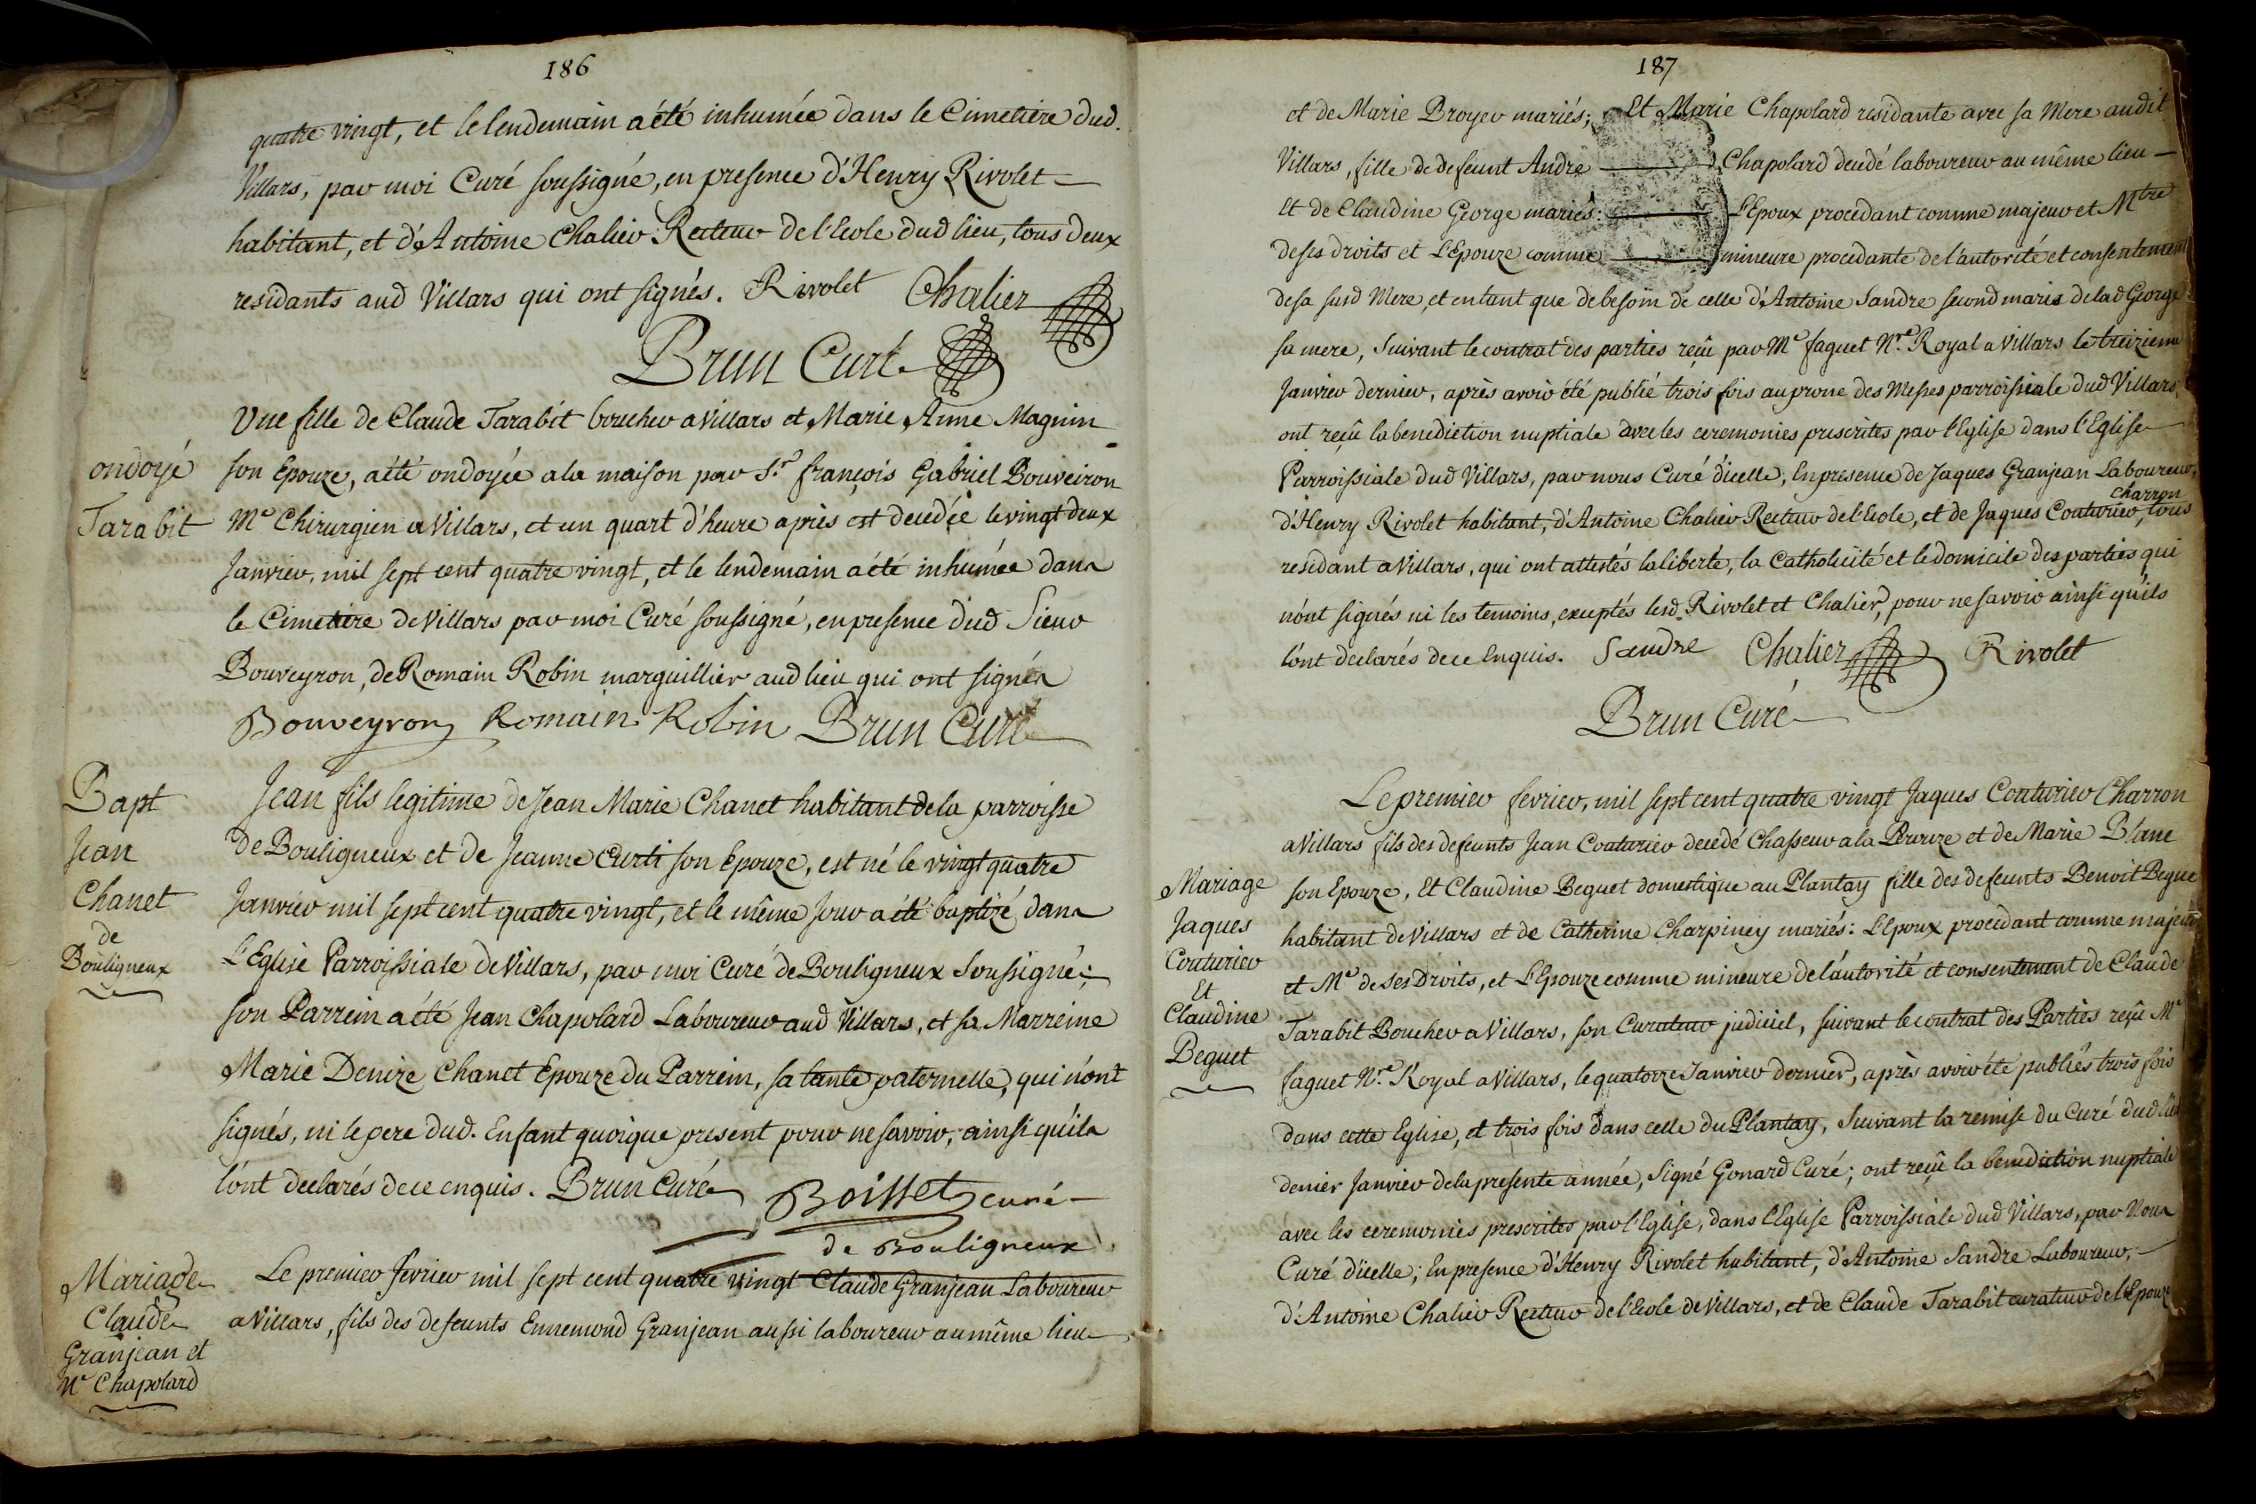 186
quatre vingt, et le lendemain a été inhumée dans le Cimetiere dud.
Villars, par moi Curé soussigné, en presence d'Henry Rivolet
habitant, et d'Antoine Chalier Recteur de l'Ecole dud lieu, tous deux
residants aud Villars qui ont signés. Rivolet Chalier
Brun Curé
ondoyé
Tarabit
Une fille de Claude Tarabit boucher a Villars et Marie Anne Magnin
son Epouze, a été ondoyée a la maison par Sr françois Gabriel Bouveiron
Me Chirurgien a Villars, et un quart d'heure après est decedée le vingt deux
Janvier, mil sept cent quatre vingt, et le lendemain a été inhumée dans
le Cimetiere de Villars par moi Curé soussigné, en presence dud Sieur
Bouveyron, de Romain Robin marguillier aud lieu qui ont signés
Bouveyron Romain Robin Brun Curé
Bapt
Jean
Chanet
de
Bouligneux
Jean fils legitime de Jean Marie Chanet habitant de la parroisse
de Bouligneux et de Jeanne Curti son Epouze, est né le vingt quatre
Janvier mil sept cent quatre vingt, et le même Jour a été baptizé dans
L'Eglise Parroissiale de Villars, par moi Curé de Bouligneux Soussigné;
son Parrein a été Jean Chapolard Laboureur aud Villars, et sa Marreine
Marie Denize Chanet Epouze du Parrein, sa tante paternelle, qui n'ont
signés, ni le pere dud. Enfant quoique present pour ne savoir, ainsi qu'ils
l'ont declarés de ce enquis. Brun Curé Boisset curé
de Bouligneux
Mariage
Claude
Granjean et
Me Chapolard
Le premier fevrier mil sept cent quatre vingt Claude Granjean Laboureur
a Villars, fils des defeunts Ennemond Granjean aussi laboureur au même lieu
187
et de Marie Broyer mariés; Et Marie Chapolard residante avec sa Mere audit
Villars, fille de defeunt Andre Chapolard deudé laboureur au même lieu
Et de Claudine George mariés: L'Epoux procedant comme majeur et Mtre
de ses droits et L'Epouze comme mineure procedante de l'autorité et consentement
de sa susd Mere, et en tant que de besoin de celle d'Antoine Sandre second maris de lad George
sa mere, Suivant le contrat des parties reçû par Me Jaguet Nre Royal a Villars le treizieme
Janvier dernier, après avoir été publié trois fois au prone des Messes parroissiale dud Villars,
ont reçû la benediction nuptiale avec les ceremonies prescrites par l'Eglise dans l'Eglise
Parroissiale dud Villars, par nous Curé d'icelle, En presence de Jaques Granjean Laboureur,
d'Henry Rivolet habitant, d'Antoine Chalier Recteur de l'Ecole, et de Jaques Couturier, charron tous
residant a Villars, qui ont attestés la liberté, la Catholicité et le domicile des parties qui
n'ont signés ni les temoins, exceptés lesd. Rivolet et Chalier, pour ne savoir ainsi qu'ils
l'ont declarés de ce Enquis. Sandre Chalier Rivolet
Brun Curé
Mariage
Jaques
Couturier
Et
Claudine
Beguet
Le premier fevrier, mil sept cent quatre vingt Jaques Couturier Charron
a Villars fils des defeunts Jean Couturier decedé Chasseur a la Perouze et de Marie Blanc
son Epouze, Et Claudine Beguet domestique au Plantay fille des defeunts Benoit Begue
habitant de Villars et de Catherine Charpiney mariés: L'Epoux procedant comme majeur
et Me de ses Droits, et L'Epouze comme mineure de l'autorité et consentement de Claude
Tarabit Boucher a Villars, son Curateur judiciel, suivant le contrat des Parties reçû Me
Jaguet Nre Royal a Villars, le quatorze Janvier dernier, après avoir été publiés trois fois
dans cette Eglise, et trois fois dans celle du Plantay, Suivant la remise du Curé dud lieu
denier Janvier de la presente année, Signé Gonard Curé; ont reçû la benediction nuptiale
avec les ceremonies prescrites par l'Eglise, dans l'Eglise Parroissiale dud Villars, par Nous
Curé d'icelle; En presence d'Henry Rivolet habitant, d'Antoine Sandre Laboureur,
d'Antoine Chalier Recteur de l'Ecole de Villars, et de Claude Tarabit curateur de l'Epouze